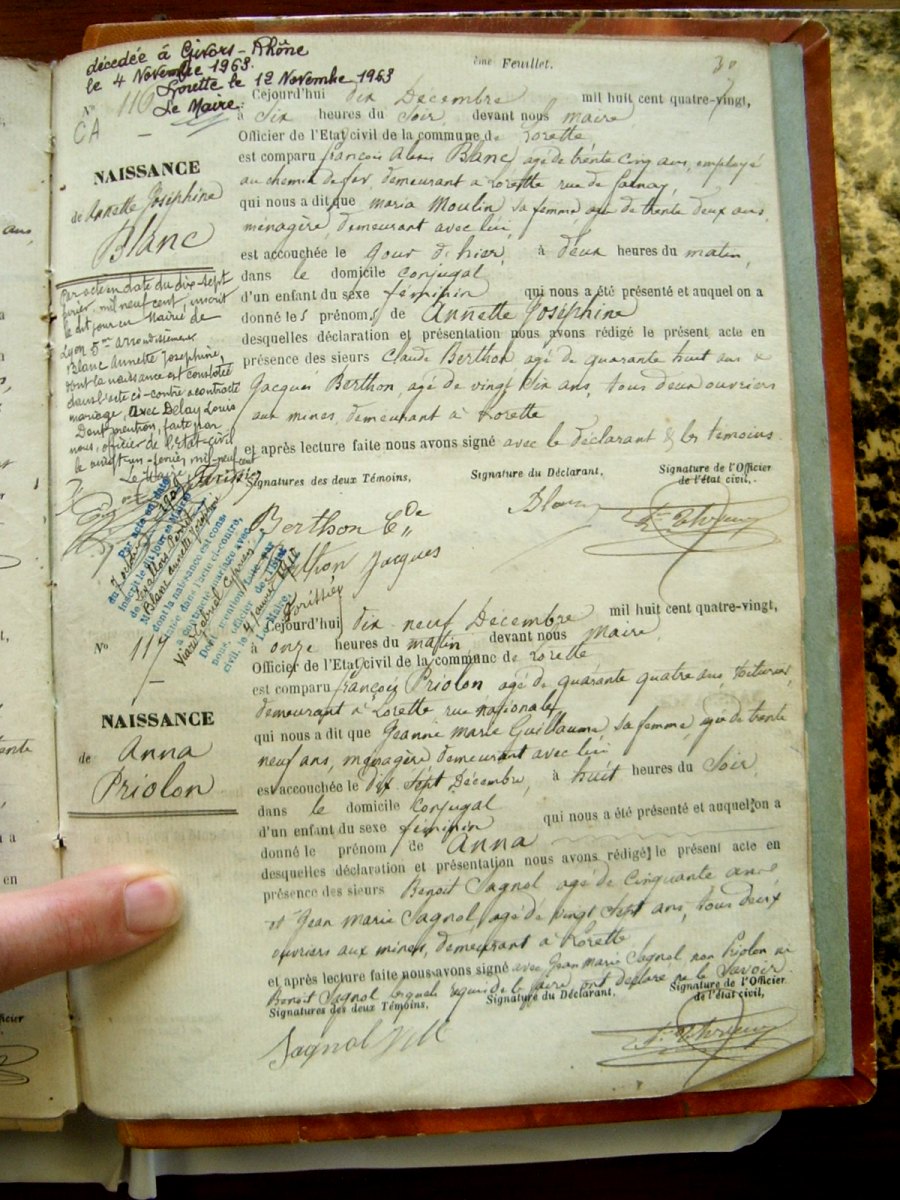 décedée à Givors - Rhône
le 4 Novembre 1963.
Lorette le 12 Novembre 1963
Le Maire.
ème Feuillet.
30
N° 116
CA
NAISSANCE
de Annette Joséphine
Blanc
Par acte en date du dix-sept
février, mil neuf cent, inscrit
le dit jour en Mairie de
Lyon 5me arrondissement
Blanc Annette Joséphine,
dont la naissance est constatée
dans l'acte ci-contre a contracté
mariage, avec Delay Louis
Dont mention, faite par
nous, officier de l'état-civil
le vingt un février, mil neuf cent
Le Maire
Par acte en date
inscrit le dit jour en Mairie
de Levallois Perret
M Blanc Annette Joséphine
dont la naissance est cons-
tatée dans l'acte ci-contre,
a contracté mariage avec
Gabriel
Dont mention faite par
nous, officier de l'état
civil, le
Le Maire,
Cejourd'hui dix Décembre mil huit cent quatre-vingt,
à Six heures du Soir, devant nous maire
Officier de l'Etat civil de la commune de Lorette
est comparu françois Alexis Blanc, agé de trente cinq ans, employé
au chemin de fer, demeurant à Lorette rue de
qui nous a dit que maria Moulin, sa femme agée de trente deux ans,
ménagère, demeurant avec lui,
est accouchée le jour d'hier, à deux heures du matin,
dans le domicile conjugal
d'un enfant du sexe féminin qui nous a été présenté et auquel on a
donné les prénoms de Annette Joséphine
desquelles déclaration et présentation nous avons rédigé le présent acte en
présence des sieurs Claude Berthon agé de quarante huit ans &
Jacques Berthon, agé de vingt six ans, tous deux ouvriers
aux mines, demeurant à Lorette
et après lecture faite nous avons signé avec le déclarant & les témoins.
Signatures des deux Témoins, Signature du Déclarant, Signature de l'Officier
de l'état civil,
Blanc
Berthon Cde
Berthon Jacques
N° 117
NAISSANCE
de Anna
Priolon
Cejourd'hui dix neuf Décembre mil huit cent quatre-vingt,
à onze heures du matin devant nous Maire
Officier de l'Etat civil de la commune de Lorette
est comparu françois Priolon agé de quarante quatre ans, voiturier,
demeurant à Lorette rue nationale,
qui nous a dit que Jeanne Marie Guillaume, sa femme, agée de trente
neuf ans, ménagère demeurant avec lui
est accouchée le dix sept Décembre, à huit heures du Soir,
dans le domicile conjugal
d'un enfant du sexe féminin qui nous a été présenté et auquel on a
donné le prénom de Anna
desquelles déclaration et présentation nous avons rédigé le présent acte en
présence des sieurs Benoit Sagnol agé de Cinquante ans
et Jean Marie Sagnol, agé de vingt Sept ans, tous deux
ouvriers aux mines, demeurant à Lorette
et après lecture faite nous avons signé avec Jean Marie Sagnol non Priolon ni
Benoit Sagnol lesquels requis de le faire, ont déclaré ne le Savoir
Signatures des deux Témoins, Signature du Déclarant, Signature de l'Officier
de l'état civil,
Sagnol